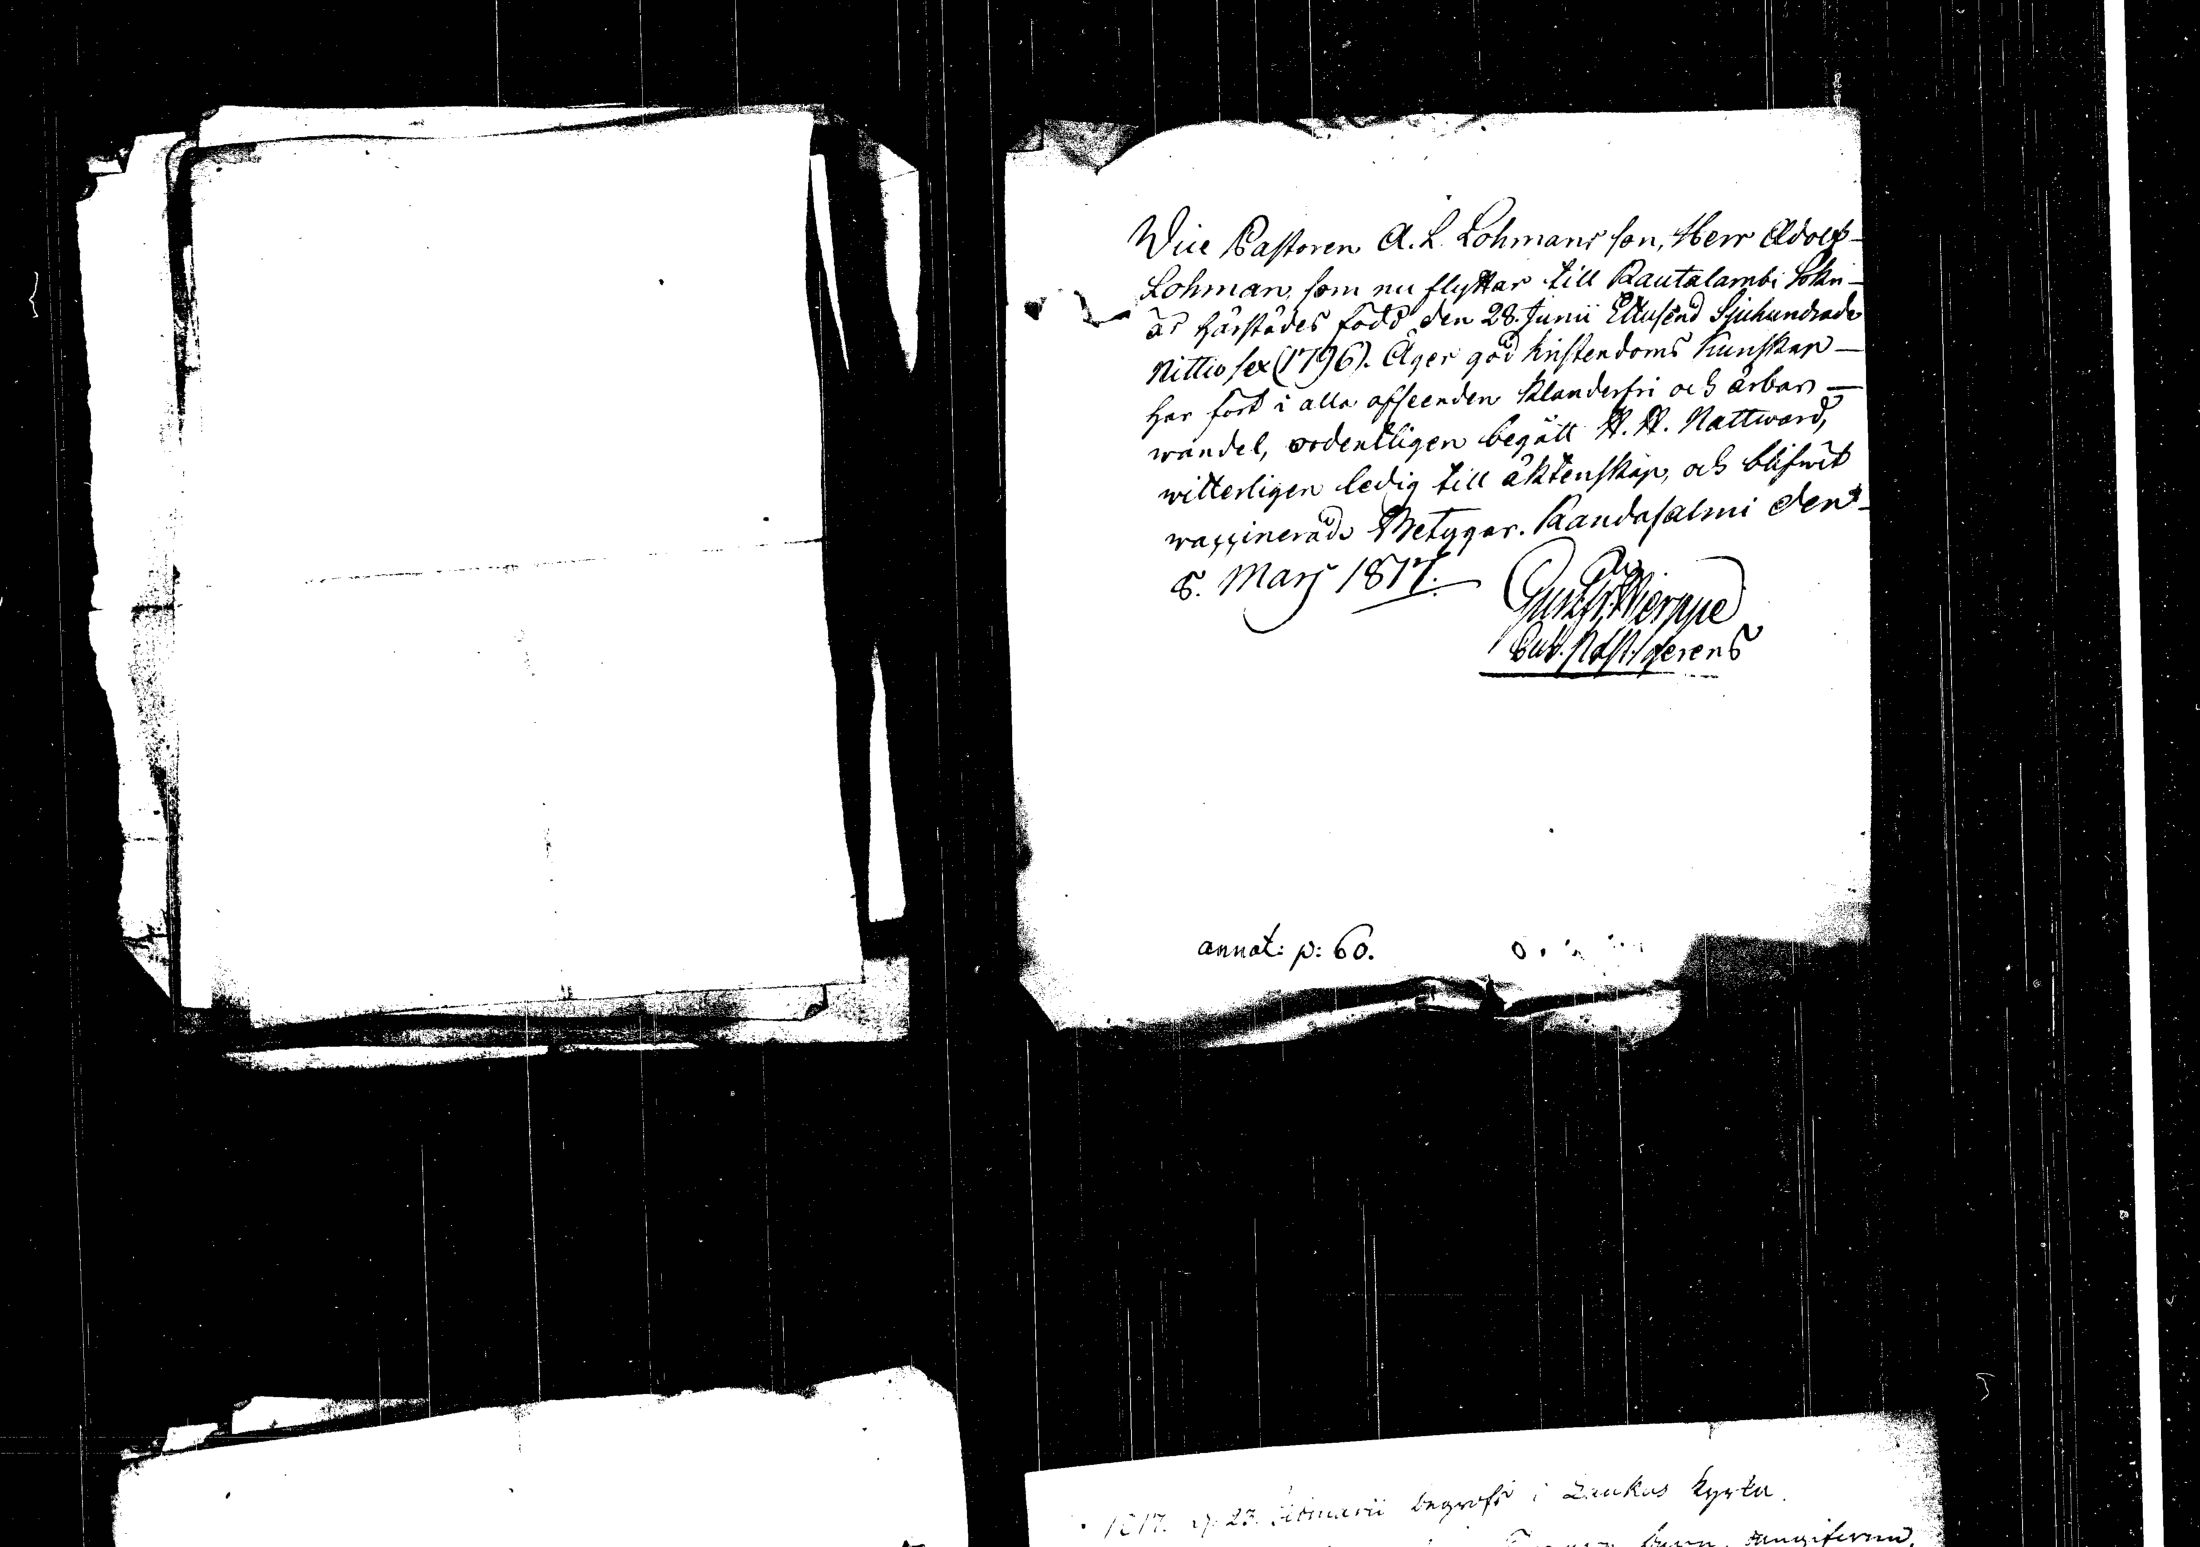 Vice Pastoren A. L. Lohmans son, Herr Adolf
Lohman, som nu flyttar till Rautalambi Sokn
är härstädes född den 28. Junii Ettusend Sjuhundrade
Nittio sex (1796). Äger god kristendoms kunskap
har fört i alla afseenden klanderfri och ärbar
wandel, ordentligen begått H. H. Nattward,
witterligen ledig till äktenskap, och blifwit
waccinerad. Betygar. Randasalmi den
8. Marj 1817.
Past. gerens
annot: p: 60.
1817. d. 23. begrofs i Laukas kyrka.